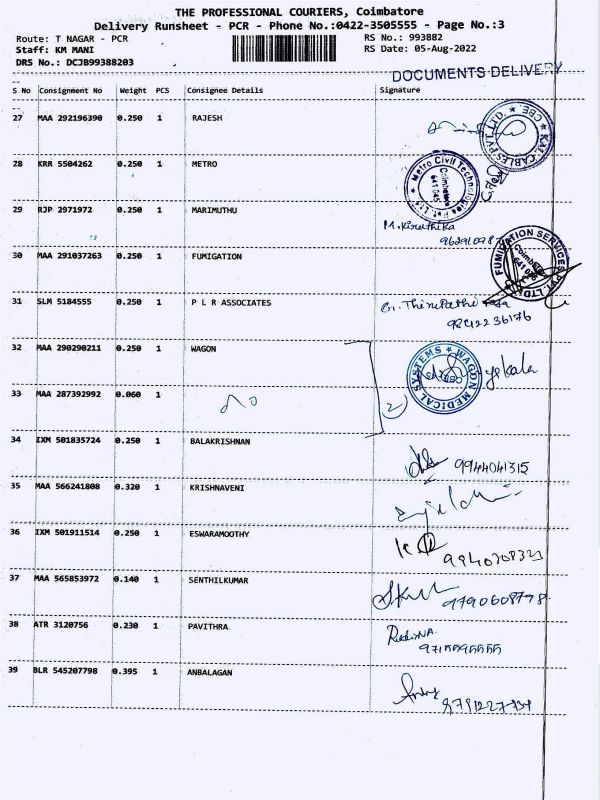 THE PROFESSIONAL COURIERS, Coimbatore
Delivery Runsheet - PCR - Phone No.:0422-3505555 - Page No.:3
Route: T NAGAR - PCR RS No.: 993882
Staff: KM MANI RS Date: 05-Aug-2022
DRS No.: DCJB99388203
DOCUMENTS DELIVERY
S No Consignment No Weight PCS Consignee Details Signature
27 MAA 292196390 0.250 1 RAJESH
KAL CABLES PVT. LTD. ★ CBE ★
28 KRR 5504262 0.250 1 METRO
Metro Civil Technologies Pvt. Ltd
Coimbatore 641 045
29 RJP 2971972 0.250 1 MARIMUTHU
M. Kiruthika
30 MAA 291037263 0.250 1 FUMIGATION
FUMIGATION SERVICES PVT. LTD.
31 SLM 5184555 0.250 1 P L R ASSOCIATES
G. Thirupathi
9842236176
32 MAA 290290211 0.250 1 WAGON
WAGON MEDICAL SYSTEMS ★
33 MAA 287392992 0.060 1
2
34 IXM 501835724 0.250 1 BALAKRISHNAN
9944041315
35 MAA 566241808 0.320 1 KRISHNAVENI
36 IXM 501911514 0.250 1 ESWARAMOOTHY
37 MAA 565853972 0.140 1 SENTHILKUMAR
9790608798
38 ATR 3120756 0.230 1 PAVITHRA
39 BLR 545207798 0.395 1 ANBALAGAN